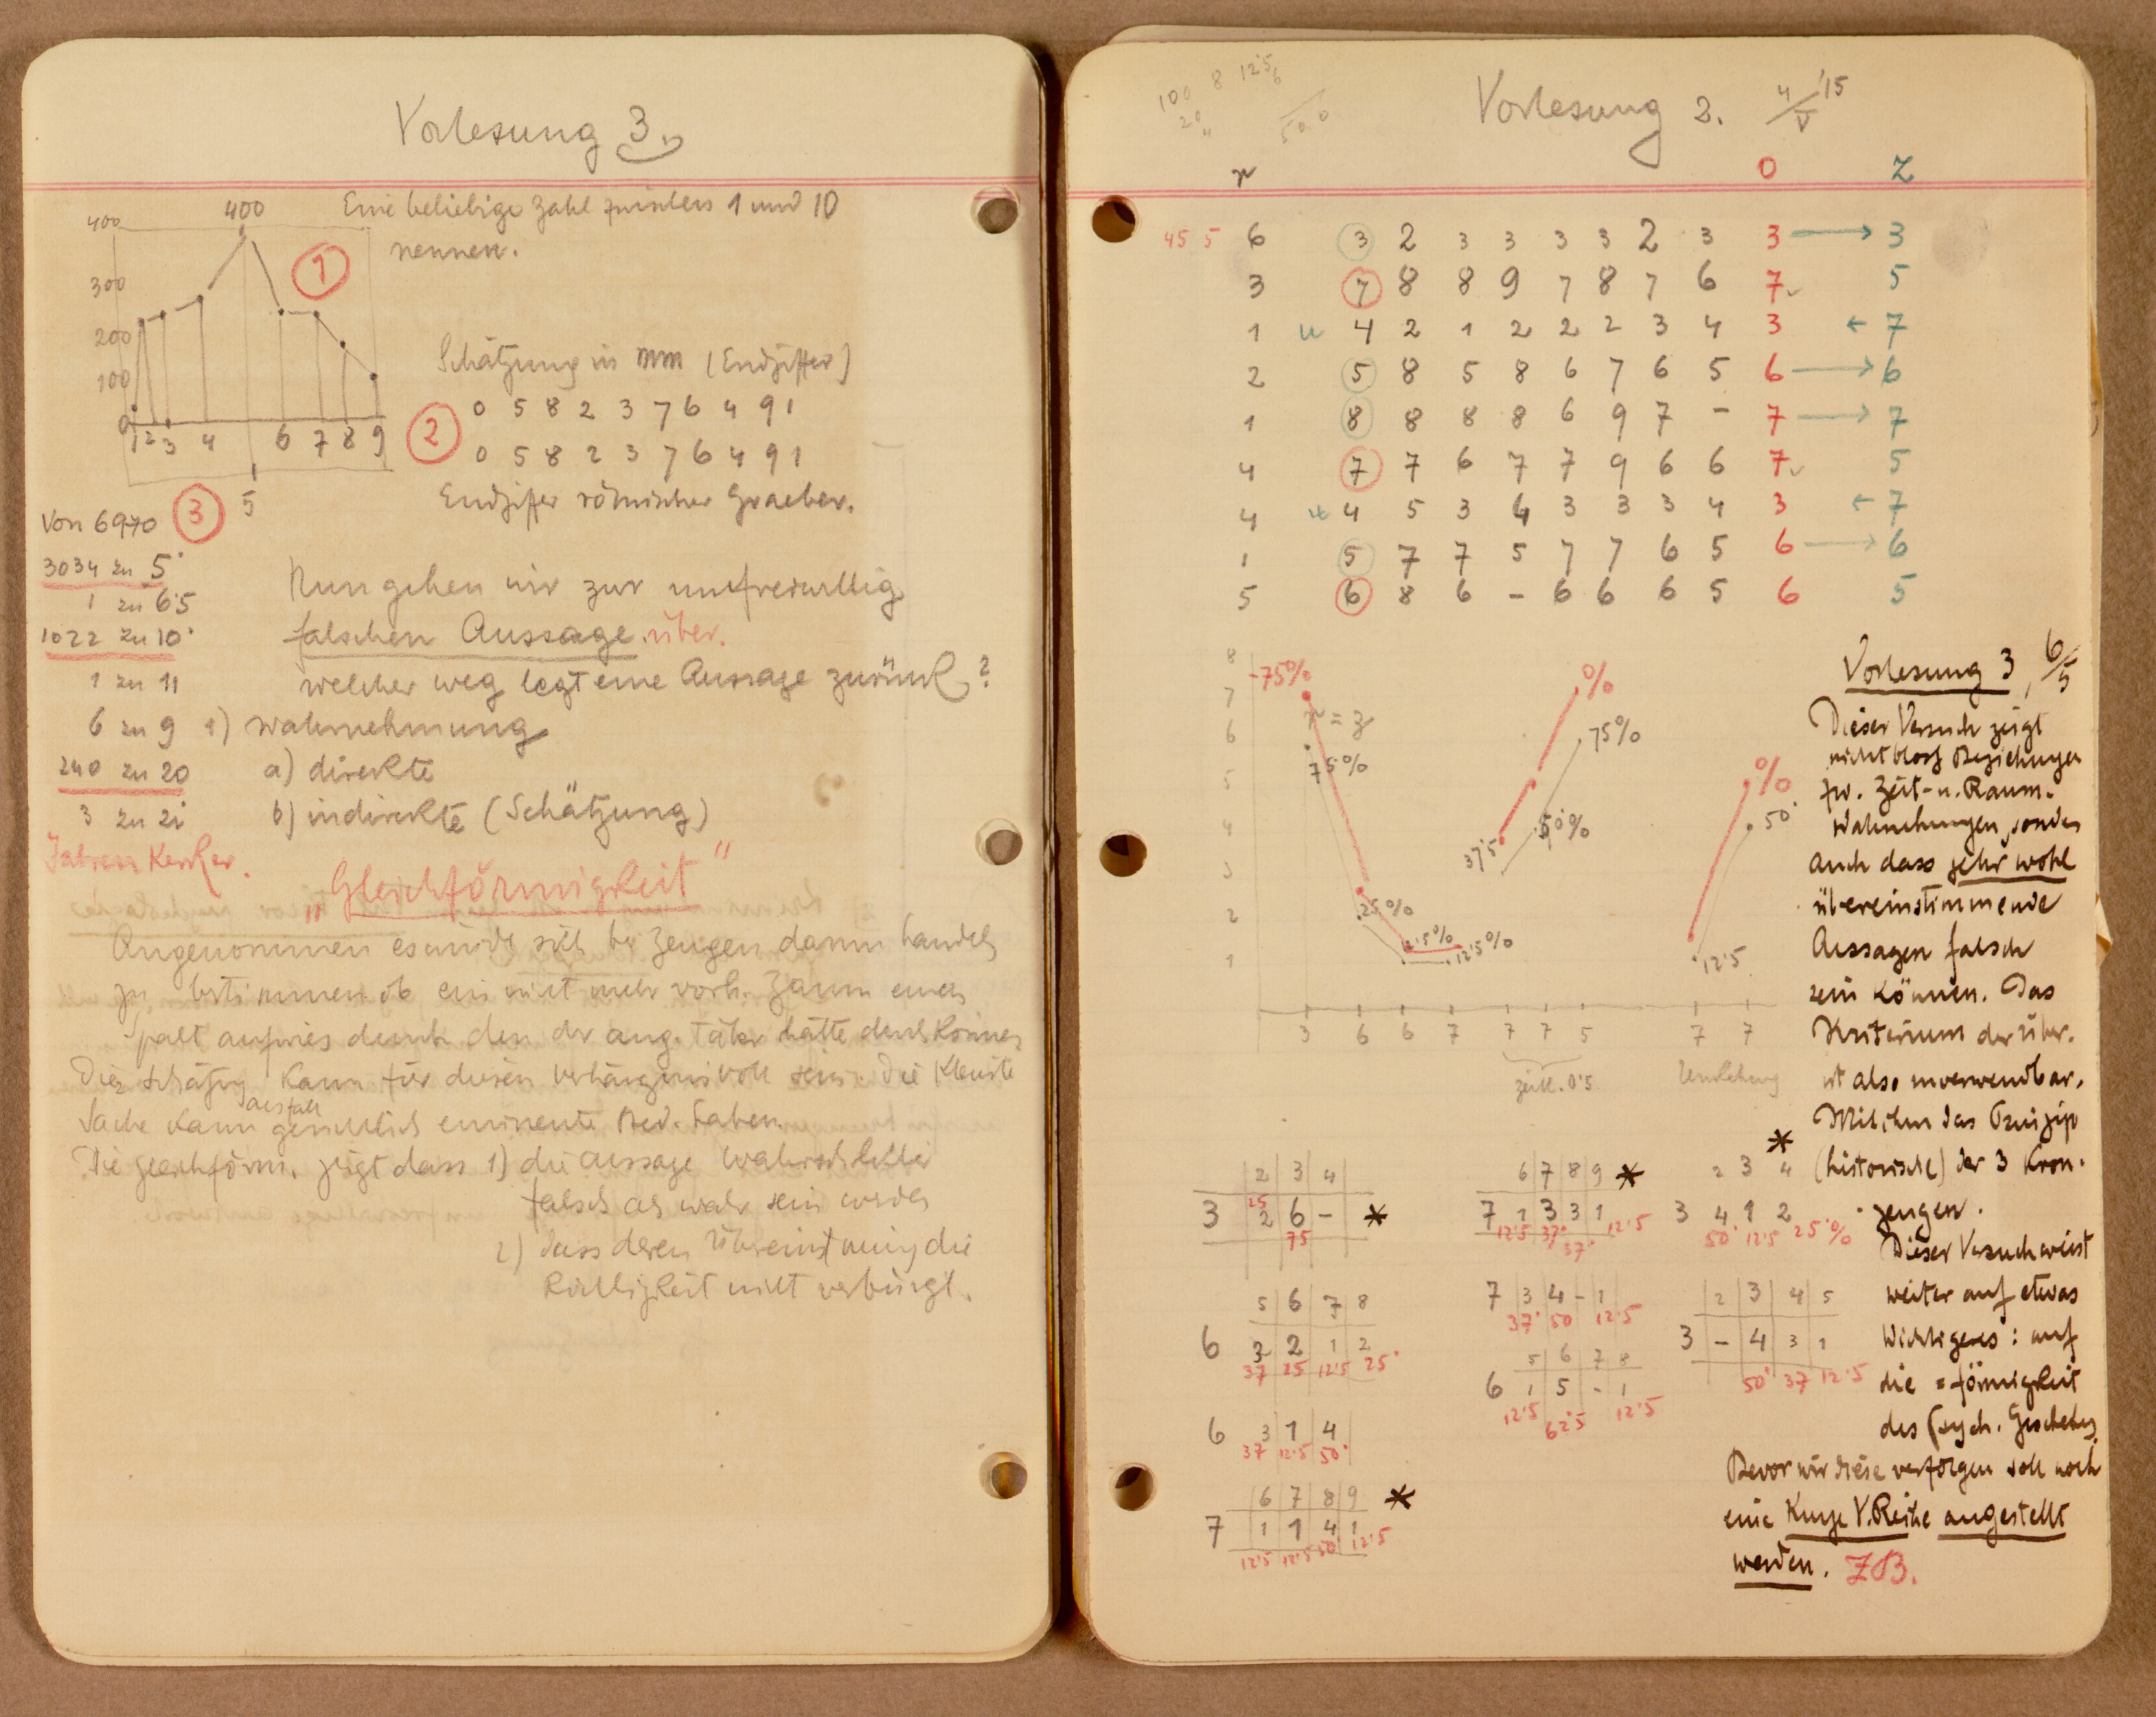 Vorlesung 3.
Eine beliebige Zahl zwischen 1 und 10
nennen.
400
400
300
200
100
0
1 2 3 4 6 7 8 9
5
1
Schätzung in mm (Endziffer)
2
0 5 8 2 3 7 6 4 9 1
0 5 8 2 3 7 6 4 9 1
Endziffer römischer Graeber.
3
Von 6970
3034 zu 5
1 zu 6·5
1022 zu 10
1 zu 11
6 zu 9
240 zu 20
3 zu 21
Jahren Kerker.
Nun gehen wir zur unfreiwillig
falschen Aussage über.
welcher weg legt eine Aussage zurück?
1) Wahrnehmung
a) direkte
b) indirekte (Schätzung)
"Gleichförmigkeit"
Angenommen es würde sich bei Zeugen darum handeln
zu bestimmen ob ein nicht mehr vorh. Zaun einen
Spalt aufwies durch den der ang. Täter hätte durch können
Die Schätzung kann für diesen verhängnisvoll sein. Die Kleinste
Sache kann gerichtlich eminente Bed. haben.
Die gleichförm. zeigt dass 1) die Aussage wahrscheinlicher
falsch als wahr sein werde
2) dass deren Übereinstimmung die
Richtigkeit nicht verbürgt.
100 8 12·5
20
500
Vorlesung 2. 4/V '15
r O Z
45 5 6 3 2 3 3 3 3 2 3 3 → 3
3 7 8 8 9 7 8 7 6 7 5
1 u 4 2 1 2 2 2 3 4 3 ← 7
2 5 8 5 8 6 7 6 5 6 → 6
1 8 8 8 8 6 9 7 – 7 → 7
4 7 7 6 7 7 9 6 6 7 5
4 u 4 5 3 4 3 3 3 4 3 ← 7
1 5 7 7 5 7 7 6 5 6 → 6
5 6 8 6 – 6 6 6 5 6 5
8
7
6
5
4
3
2
1
75%
r = z
75%
25%
12·5%
12·5%
%
75%
50%
37·5
%
50
12·5
3 6 6 7 7 7 5 7 7
zeitl. 0'5
Umkehrung
2 3 4
3 2 6 – *
25
75
5 6 7 8
6 3 2 1 2
37 25 12·5 25
6 3 1 4
37 12·5 50
6 7 8 9 *
7 1 1 4 1
12·5 12·5 50 12·5
6 7 8 9 *
7 1 3 3 1
12·5 37 37 12·5
7 3 4 – 1
37 50 12·5
5 6 7 8
6 1 5 – 1
12·5 62·5 12·5
*
2 3 4
3 4 1 2
50 12·5 25%
2 3 4 5
3 – 4 3 1
50 37 12·5
Vorlesung 3, 6/5
Dieser Versuch zeigt
nicht bloss Beziehungen
zw. Zeit- u. Raum-
wahrnehmungen, sondern
auch dass sehr wohl
übereinstimmende
Aussagen falsch
sein können. Das
Kriterium der Über.
ist also unverwendbar.
Mit ihm das Prinzip
(historische) der 3 Kron-
zeugen.
Dieser Versuch weist
weiter auf etwas
Wichtigeres: auf
die =förmigkeit
des psych. Geschehens.
Bevor wir diese verfolgen soll noch
eine Kurze V.Reihe angestellt
werden. ZB.